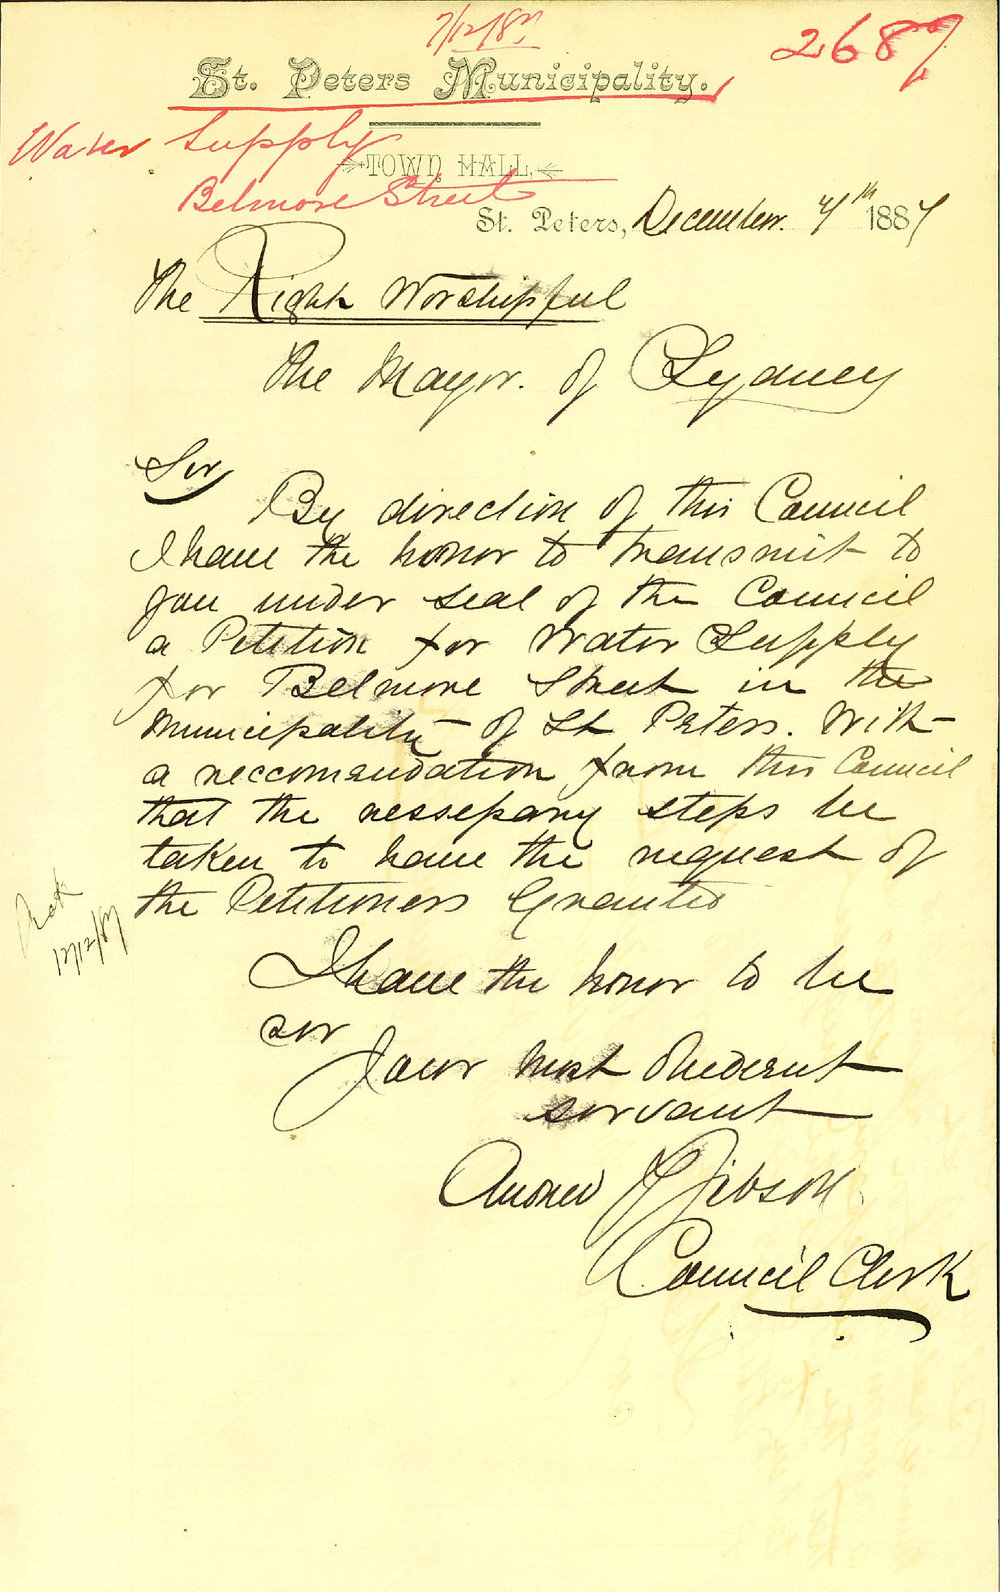 7/12/87
2687
St. Peters Municipality.
Water Supply
TOWN HALL,
Belmore Street
St. Peters, December 7th 1887
The Right Worshipful
The Mayor. of Sydney
Sir
By direction of this Council
I have the honor to transmit to
you under seal of the Council
a Petition for Water Supply
for Belmore Street in the
Municipality of St Peters. With
a reccomendation from this Council
that the nessesary steps be
taken to have the request of
the Petitioners Granted
Ack
12/12/87
I have the honor to be
Sir
Your most obedient
servant
Andrew Gibson
Council Clerk